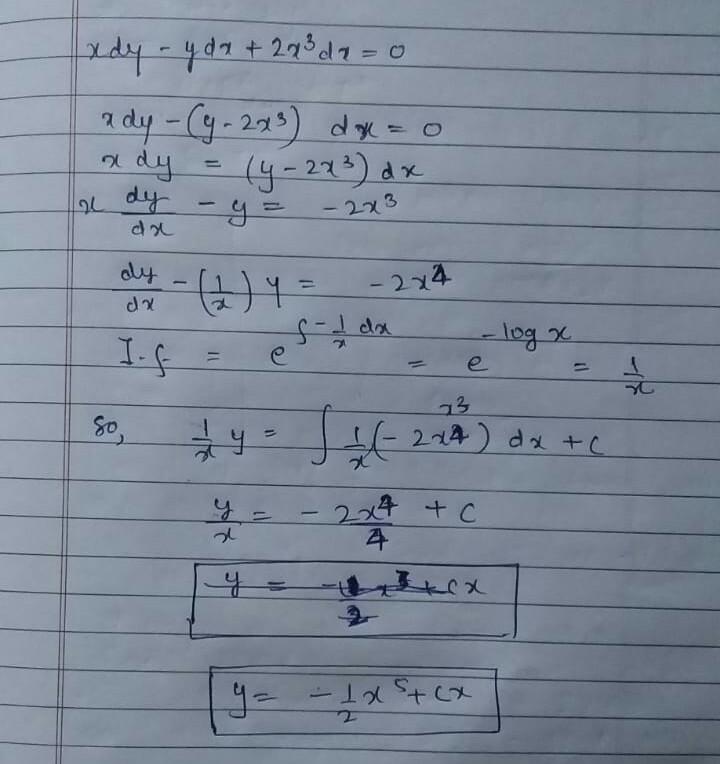 x dy - y dx + 2x³ dx = 0
x dy - (y - 2x³) dx = 0
x dy = (y - 2x³) dx
x dy/dx - y = -2x³
dy/dx - (1/x) y = -2x⁴
I.f = e^∫-1/x dx = e^-log x = 1/x
so, 1/x y = ∫ 1/x (-2x⁴) dx + c
x³
y/x = -2x⁴/4 + c
y = - x³ + cx
2
y = -1/2 x⁵ + cx